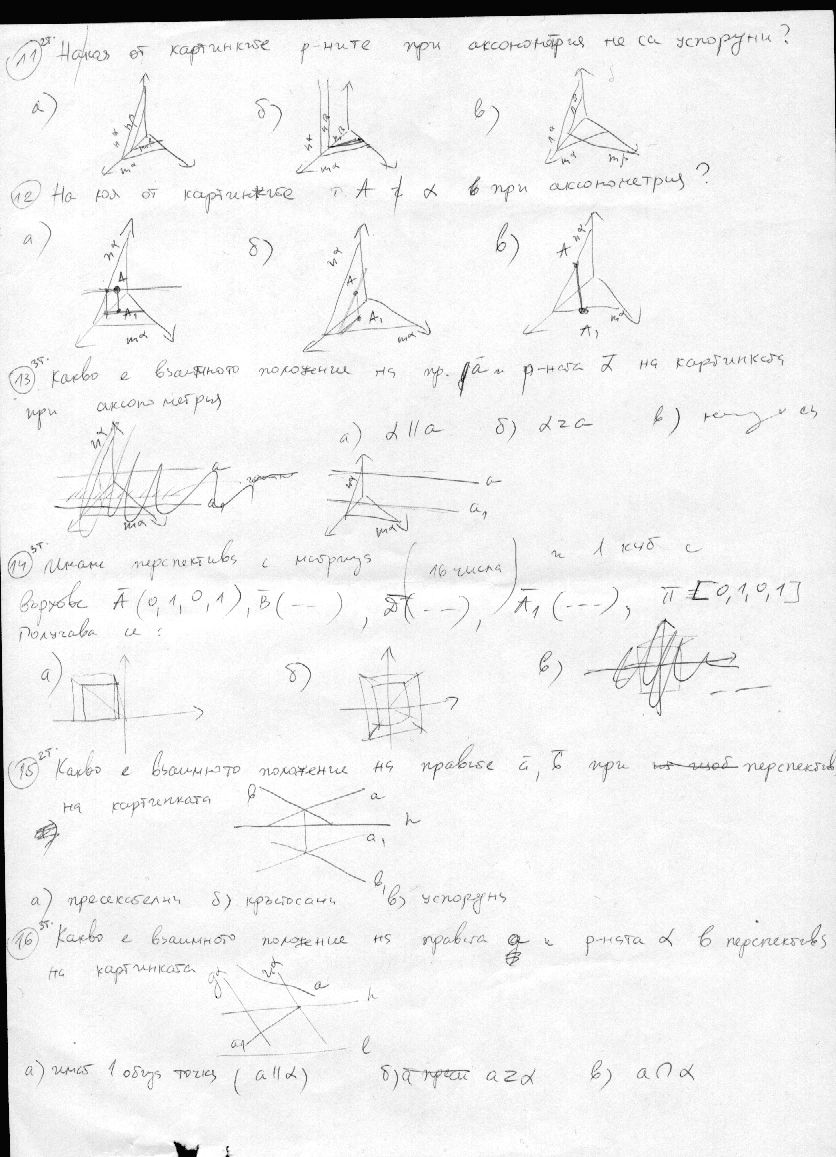 11 2т. На коя от картинките р-ните при аксонометрия не са успоредни?
а) б) в)
nα nβ mβ mα nα nβ mβ mα nα nβ mα mβ
12 На коя от картинките т. A ∉ α в при аксонометрия?
а) б) в)
nα A A₁ mα nα A A₁ mα nα A A₁ mα
13 3т. Какво е взаимното положение на пр. a и р-ната α на картинката
при аксонометрия
а) α || a б) α ⊇ a в)
nα a a₁ mα nα a a₁ mα
14 3т. Имаме перспектива с матрица (16 числа) и 1 куб с
върхове A̅(0,1,0,1), B̅(---), D̅(---), A̅₁(---), π̅=[0,1,0,1]
Получава се:
а) б) в)
15 2т. Какво е взаимното положение на правите a̅, b̅ при перспектив
на картинката
b a h a₁ b₁
а) пресекателни б) кръстосани в) успоредни
16 3т. Какво е взаимното положение на правата a и р-ната α в перспектива
на картинката
gα vα a h a₁ l
а) имат 1 обща точка (a || α) б) a ⊇ α в) a ∩ α